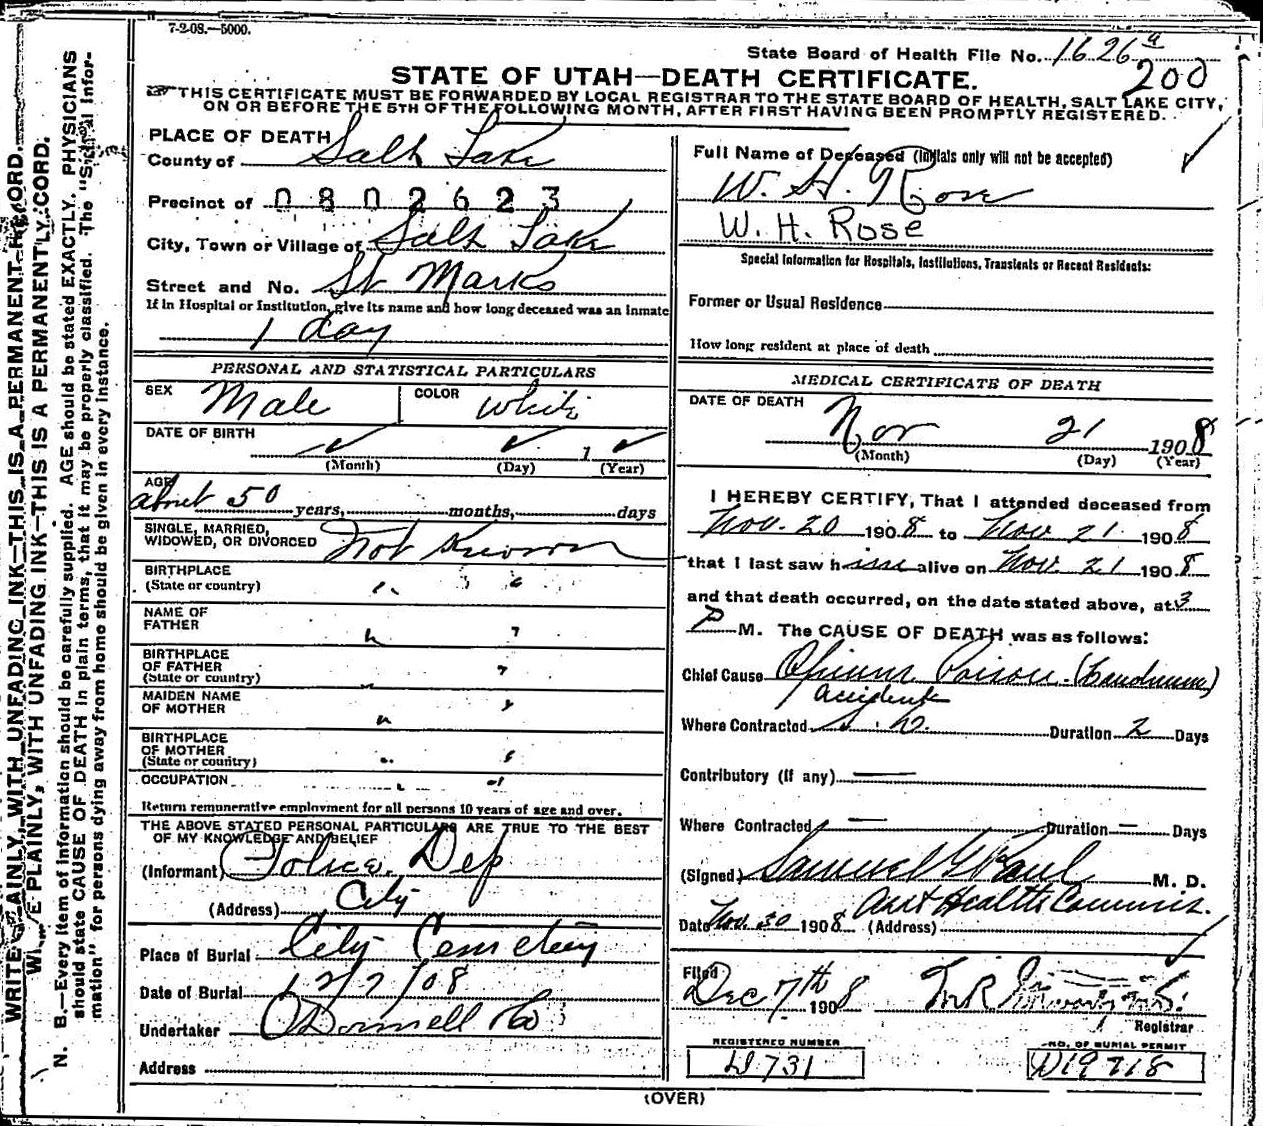 7-2-08.—5000.
State Board of Health File No. 1626 a
200
STATE OF UTAH—DEATH CERTIFICATE.
THIS CERTIFICATE MUST BE FORWARDED BY LOCAL REGISTRAR TO THE STATE BOARD OF HEALTH, SALT LAKE CITY,
ON OR BEFORE THE 5TH OF THE FOLLOWING MONTH, AFTER FIRST HAVING BEEN PROMPTLY REGISTERED.
PLACE OF DEATH
County of Salt Lake
Precinct of 0802623
City, Town or Village of Salt Lake
Street and No. St Marks
If in Hospital or Institution, give its name and how long deceased was an inmate
1 day
PERSONAL AND STATISTICAL PARTICULARS
SEX Male COLOR White
DATE OF BIRTH
1
(Month) (Day) (Year)
AGE
about 50 years, months, days
SINGLE, MARRIED,
WIDOWED, OR DIVORCED Not Known
BIRTHPLACE
(State or country) " "
NAME OF
FATHER " "
BIRTHPLACE
OF FATHER
(State or country) " "
MAIDEN NAME
OF MOTHER " "
BIRTHPLACE
OF MOTHER
(State or country) " "
OCCUPATION " "
Return remunerative employment for all persons 10 years of age and over.
THE ABOVE STATED PERSONAL PARTICULARS ARE TRUE TO THE BEST
OF MY KNOWLEDGE AND BELIEF
(Informant) Police Dep
(Address) City
Place of Burial City Cemetery
Date of Burial 12/7/08
Undertaker O'Donnell & Co
Address
Full Name of Deceased (Initials only will not be accepted)
W. H. Rose
W. H. Rose
Special Information for Hospitals, Institutions, Transients or Recent Residents:
Former or Usual Residence
How long resident at place of death
MEDICAL CERTIFICATE OF DEATH
DATE OF DEATH
Nov 21 1908
(Month) (Day) (Year)
I HEREBY CERTIFY, That I attended deceased from
Nov. 20 1908 to Nov 21 1908
that I last saw him alive on Nov. 21 1908
and that death occurred, on the date stated above, at 3
P M. The CAUSE OF DEATH was as follows:
Chief Cause Opium Poison (Laudnum)
accident
Where Contracted Duration 2 Days
Contributory (if any) —
Where Contracted — Duration — Days
(Signed) Samuel G Paul M. D.
Date Nov. 30 1908 (Address) Health Commis.
Filed
Dec 7th 1908
Registrar
REGISTERED NUMBER
D731
NO. OF BURIAL PERMIT
D19718
(OVER)
WRITE PLAINLY, WITH UNFADING INK—THIS IS A PERMANENT RECORD.
WRITE PLAINLY, WITH UNFADING INK—THIS IS A PERMANENTLY CORD.
N. B.—Every item of information should be carefully supplied. AGE should be stated EXACTLY. PHYSICIANS
should state CAUSE OF DEATH in plain terms, that it may be properly classified. The "Special Infor-
mation" for persons dying away from home should be given in every instance.